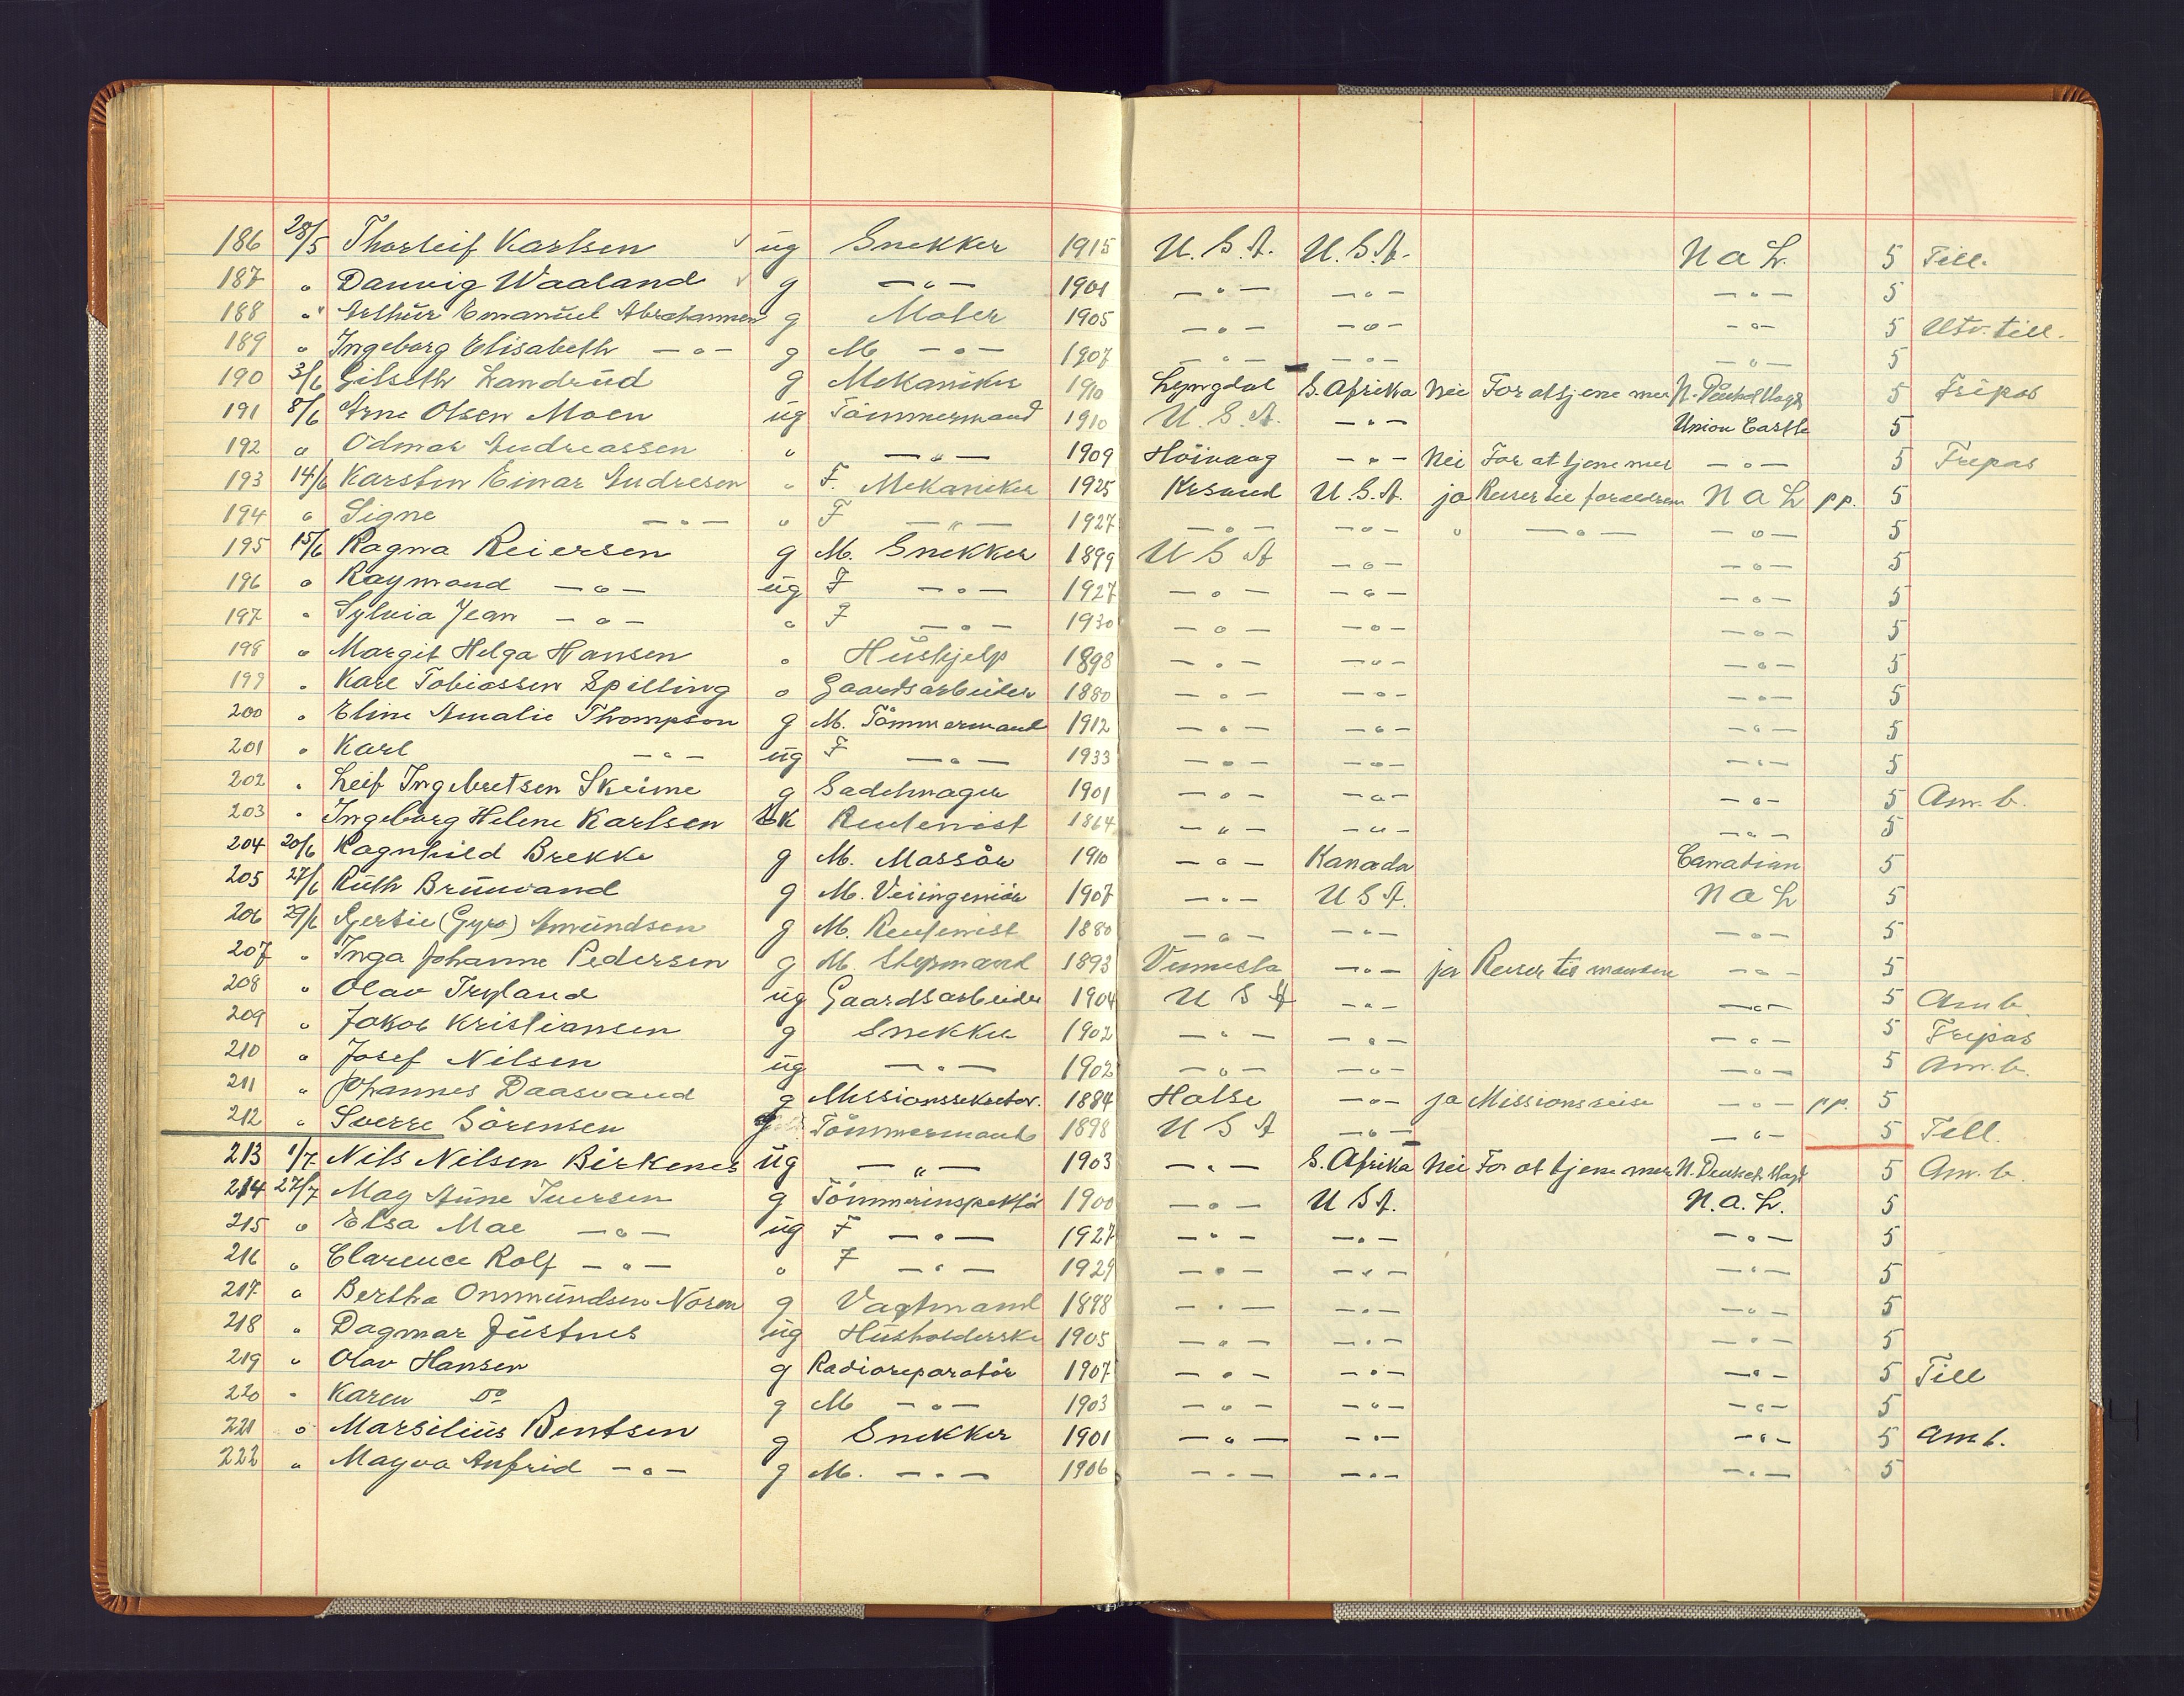 186 28/5 Thorleif Karlsen ug Snekker 1915 U.S.A. U.S.A. N a L 5 Till.
187 " Danvig Waaland g — " — 1901 — " — — " — — " — 5
188 " Arthur Emanuel Abrahamsen g Maler 1905 — " — — " — — " — 5 Utv. till.
189 " Ingeborg Elisabeth — " — g M — " — 1907 — " — — " — — " — 5
190 3/6 Gilseth Landrud g Mekaniker 1910 Lyngdal S. Afrika Nei For at tjene mer 5 Fripas
191 8/6 Arne Olsen Moen ug Tömmermand 1910 U.S.A. — " — Union Castle 5
192 " Odmar Andreassen " — " — 1909 Höivaag — " — Nei For at tjene mer — " — 5 Frepas
193 14/6 Karsten Einar Andresen " F. Mekaniker 1925 Krsand U.S.A. ja Reiser til foreldrene N a L pp. 5
194 " Signe — " — " F — " — 1927 — " — — " — " — " — — " — 5
195 15/6 Ragna Reiersen g M. Snekker 1899 U S A — " — — " — 5
196 " Raymond — " — ug F — " — 1927 — " — — " — — " — 5
197 " Sylvia Jean — " — " F — " — 1930 — " — — " — — " — 5
198 " Margit Helga Hansen " Hushjelp 1898 — " — — " — — " — 5
199 " Karl Tobiassen Spilling " Gaardsarbeider 1880 — " — — " — — " — 5
200 " Eline Amalie Thompson g M. Tömmermand 1912 — " — — " — — " — 5
201 " Karl — " — ug F — " — 1933 — " — — " — — " — 5
202 " Leif Ingebretsen Skeime g Sadelmager 1901 — " — — " — — " — 5 Am. b.
203 " Ingeborg Helene Karlsen Ek Rentenist 1864 — " — — " — — " — 5
204 20/6 Ragnhild Brekke g M. Massör 1910 — " — Kanada Canadian 5
205 27/6 Ruth Bruuvand g M. Veiingeniör 1907 — " — U S A. N a L 5
206 29/6 Gjertie (Gyro) Amundsen g M. Rentenist 1880 — " — — " — — " — 5
207 " Inga Johanne Pedersen g M. Styrmand 1893 Vennesla — " — ja Reiser til manden — " — 5
208 " Olav Tryland ug Gaardsarbeider 1904 U S A — " — — " — 5 Am b.
209 " Jakob Kristiansen g Snekker 1902 — " — — " — — " — 5 Frepas
210 " Josef Nilsen ug — " — 1902 — " — — " — — " — 5 Am. b.
211 " Johannes Daasvand g Missionssekretær. 1884 Halse — " — ja Missionsreise — " — pp. 5
212 " Sverre Sörensen g Tömmermand 1898 U S A — " — — " — 5 Till.
213 1/7 Nils Nilsen Birkenes ug — " — 1903 — " — S. Afrika Nei For at tjene mer 5 Am. b.
214 27/7 May Aune Iversen g Tömmerinspektör 1900 — " — U S A. N.a.L. 5
215 " Elsa Mae — " — ug F — " — 1927 — " — — " — — " — 5
216 " Clarence Rolf — " — " F — " — 1929 — " — — " — — " — 5
217 " Bertha Onmundsen Noren g Vagtmand 1898 — " — — " — — " — 5
218 " Dagmar Justnes ug Husholderske 1905 — " — — " — — " — 5
219 " Olav Hansen g Radioreparatör 1907 — " — — " — — " — 5 Till
220 " Karen Do g M — " — 1903 — " — — " — — " — 5
221 " Marsilius Bentsen g Snekker 1901 — " — — " — — " — 5 Am b.
222 " Magva Anfrid — " — g M. — " — 1906 — " — — " — — " — 5